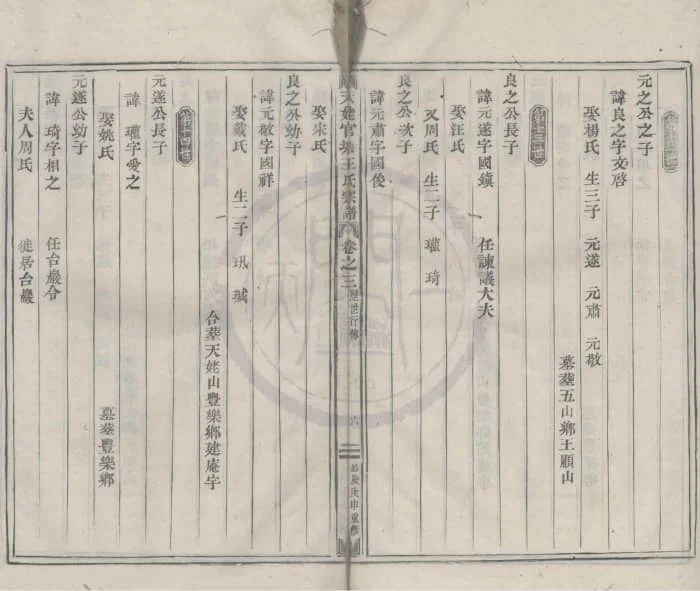 元之公之子
諱良之字文啓
娶楊氏 生三子 元遂 元肅 元敬
墓塟五山鄉王顧山
良之公長子
諱元遂字國鎮 任諫議大夫
娶汪氏
又周氏 生二子 瓘 琦
良之公次子
諱元肅字國俊
天姥官塘王氏宗譜 卷之三 歷世行傳 六
娶朱氏
良之公幼子
諱元敬字國祥
娶戴氏 生二子 璣 瑊
合塟天姥山豐樂鄉建庵字
元遂公長子
諱瓘字愛之
娶姚氏 墓塟豐樂鄉
元遂公幼子
諱琦字相之 任台巖令
夫人周氏 徙居台巖